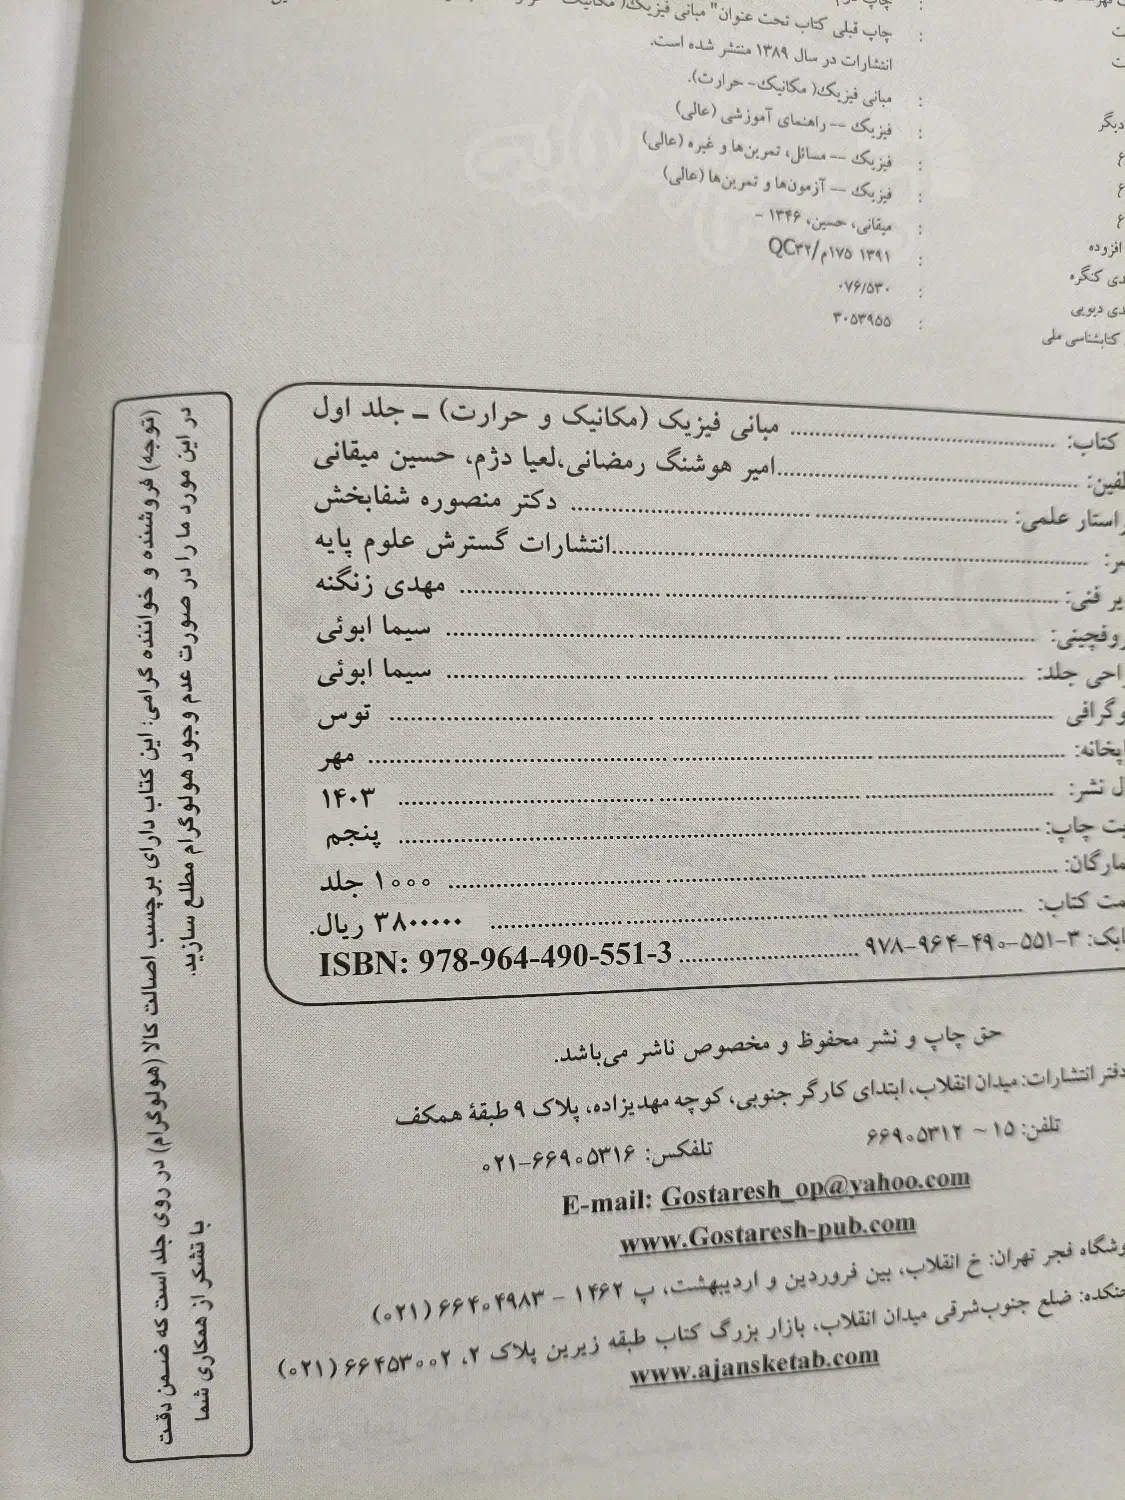 چاپ قبلی کتاب تحت عنوان" مبانی فیزیک( مکانیک
انتشارات در سال ۱۳۸۹ منتشر شده است.
: مبانی فیزیک( مکانیک- حرارت).
دیگر : فیزیک -- راهنمای آموزشی (عالی)
ع : فیزیک -- مسائل، تمرین‌ها و غیره (عالی)
ع : فیزیک -- آزمون‌ها و تمرین‌ها (عالی)
افزوده : میقانی، حسین، ۱۳۴۶ -
دی کنگره : ۱۳۹۱ ۱۷۵م/QC۳۲
دی دیویی : ۰۷۶/۵۳۰
کتابشناسی ملی : ۳۰۵۳۹۵۵
کتاب: مبانی فیزیک (مکانیک و حرارت) – جلد اول
لفین: امیر هوشنگ رمضانی،لعیا دژم، حسین میقانی
راستار علمی: دکتر منصوره شفابخش
سر: انتشارات گسترش علوم پایه
یر فنی: مهدی زنگنه
روفچینی: سیما ابوئی
راحی جلد: سیما ابوئی
وگرافی توس
اپخانه: مهر
ل نشر: ۱۴۰۳
بت چاپ: پنجم
مارگان: ۱۰۰۰ جلد
مت کتاب: ۳۸۰۰۰۰۰ ریال.
ابک: ۳-۵۵۱-۴۹۰-۹۶۴-۹۷۸ ISBN: 978-964-490-551-3
حق چاپ و نشر محفوظ و مخصوص ناشر می‌باشد.
دفتر انتشارات: میدان انقلاب، ابتدای کارگر جنوبی، کوچه مهدیزاده، پلاک ۹ طبقهٔ همکف
تلفن: ۱۵ ~ ۶۶۹۰۵۳۱۲ تلفکس: ۶۶۹۰۵۳۱۶-۰۲۱
E-mail: Gostaresh_op@yahoo.com
www.Gostaresh-pub.com
وشگاه فجر تهران: خ انقلاب، بین فروردین و اردیبهشت، پ ۱۴۶۲ - ۶۶۴۰۴۹۸۳ (۰۲۱)
ضلع جنوب‌شرقی میدان انقلاب، بازار بزرگ کتاب طبقه زیرین پلاک ۲، ۶۶۴۵۳۰۰۲ (۰۲۱)
www.ajansketab.com
(توجه) فروشنده و خواننده گرامی: این کتاب دارای برچسب اصالت کالا (هولوگرام) در روی جلد است که ضمن دقت
در این مورد ما را در صورت عدم وجود هولوگرام مطلع سازید.
با تشکر از همکاری شما